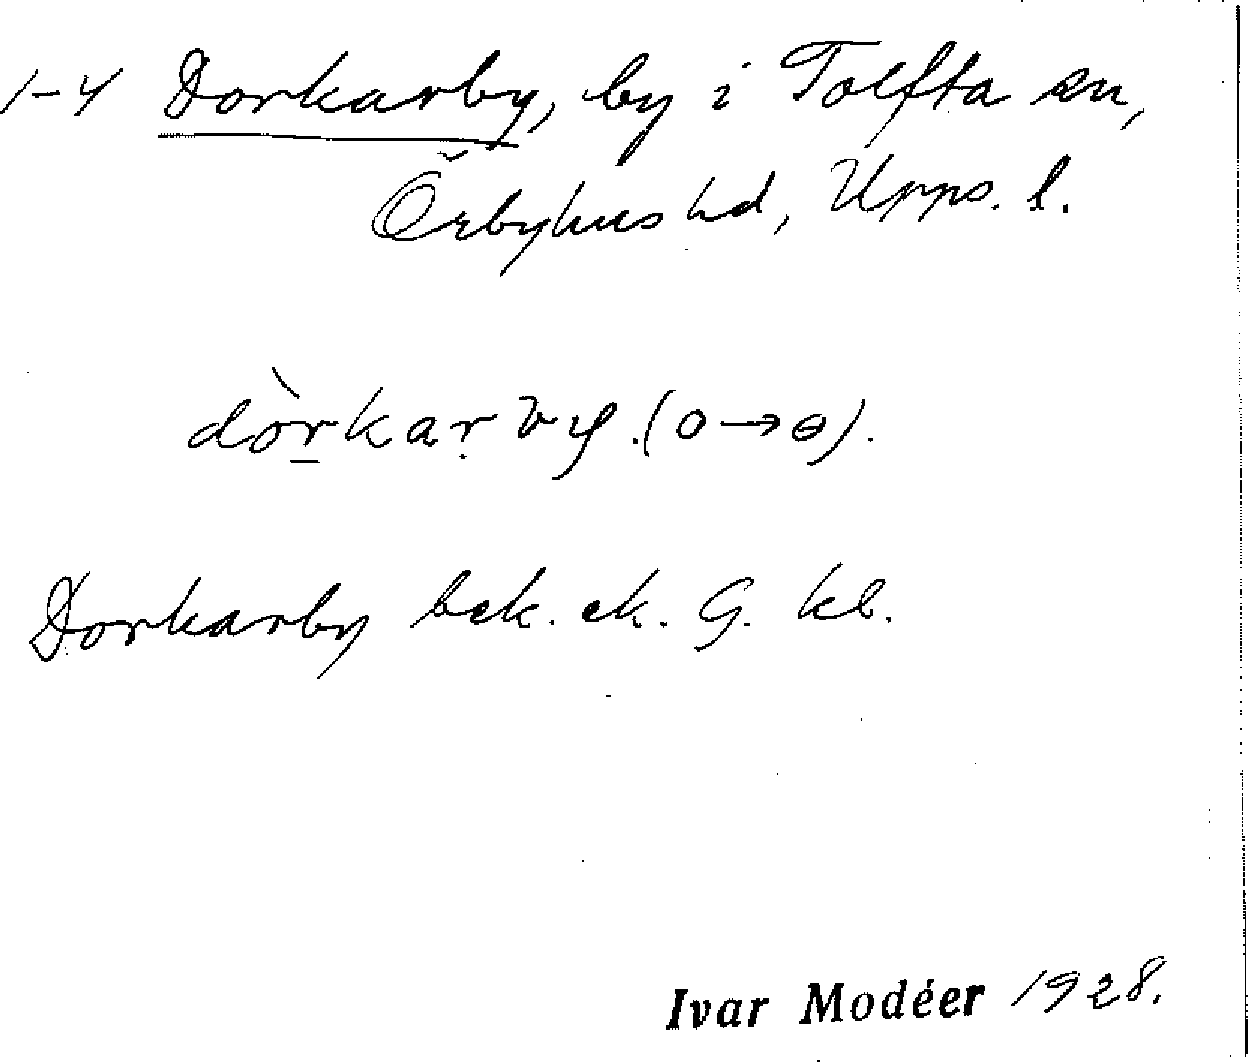 1-4 Dorkarby, by i Tolfta sn,
Örbyhus hd, Upps. l.
dòr̠kaṛ vy. (o → ɵ).
Dorkarby bek. ek. G. kl.
Ivar Modéer 1928.